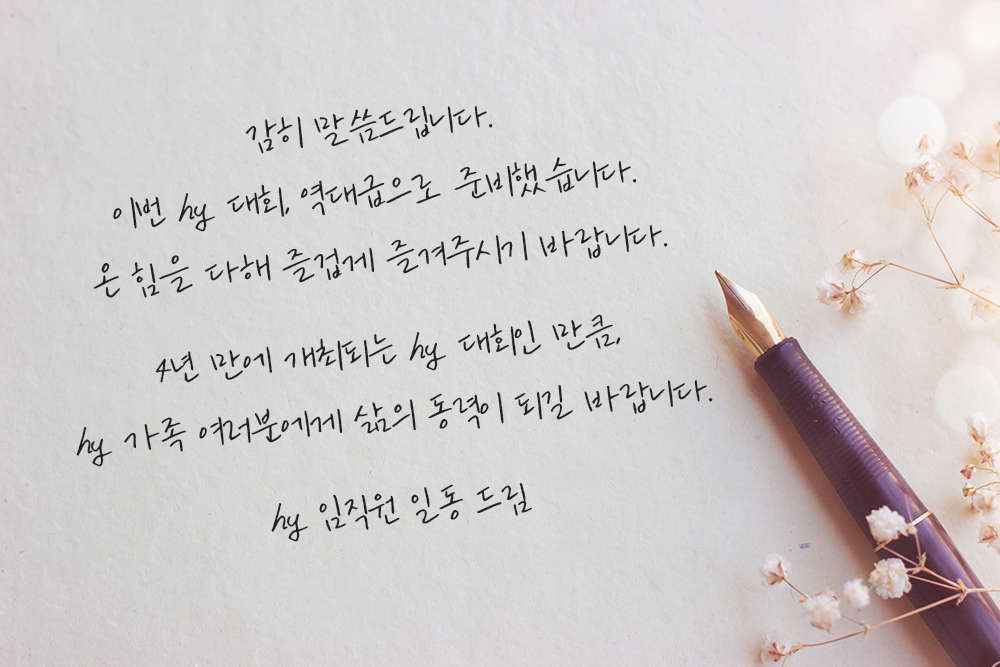 감히 말씀드립니다.
이번 hy 대회, 역대급으로 준비했습니다.
온 힘을 다해 즐겁게 즐겨주시기 바랍니다.
4년 만에 개최되는 hy 대회인 만큼,
hy 가족 여러분에게 삶의 동력이 되길 바랍니다.
hy 임직원 일동 드림